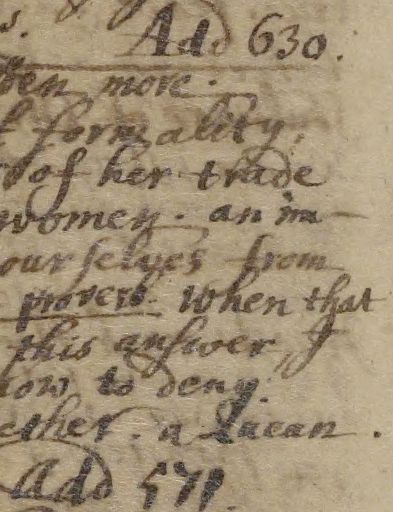 s. &
Add 630.
en more.
formality,
of her trade
women. an im-
ourselves from
proverb. when that
this answer, I
how to deny.
ether. a Lucan.
Add 571.